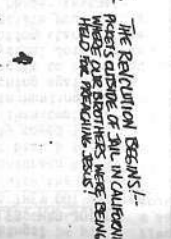 THE REVOLUTION BEGINS!--
PICKETS OUTSIDE OF JAIL IN CALIFORNIA
WHERE OUR BROTHERS WERE BEING
HELD FOR PREACHING JESUS!